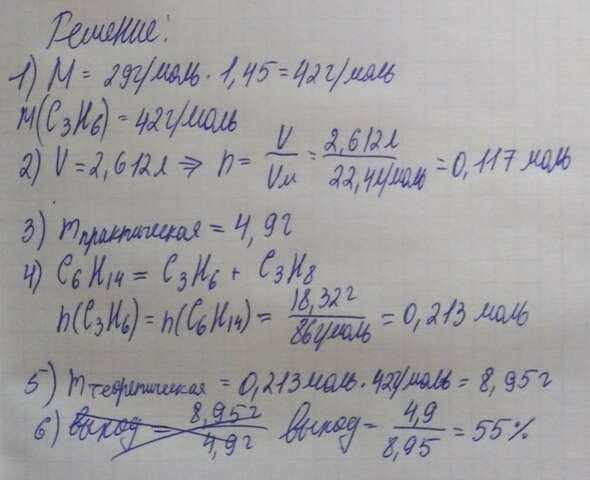 Решение:
1) M = 29г/моль · 1,45 = 42г/моль
M(C₃H₆) = 42г/моль
2) V = 2,612л ⇒ n = V/Vм = 2,612л/22,4л/моль = 0,117 моль
3) mпрактическая = 4,9г
4) C₆H₁₄ = C₃H₆ + C₃H₈
n(C₃H₆) = n(C₆H₁₄) = 18,32г/86г/моль = 0,213 моль
5) mтеоретическая = 0,213моль · 42г/моль = 8,95г
6) выход = 8,95г/4,9г выход = 4,9/8,95 = 55%